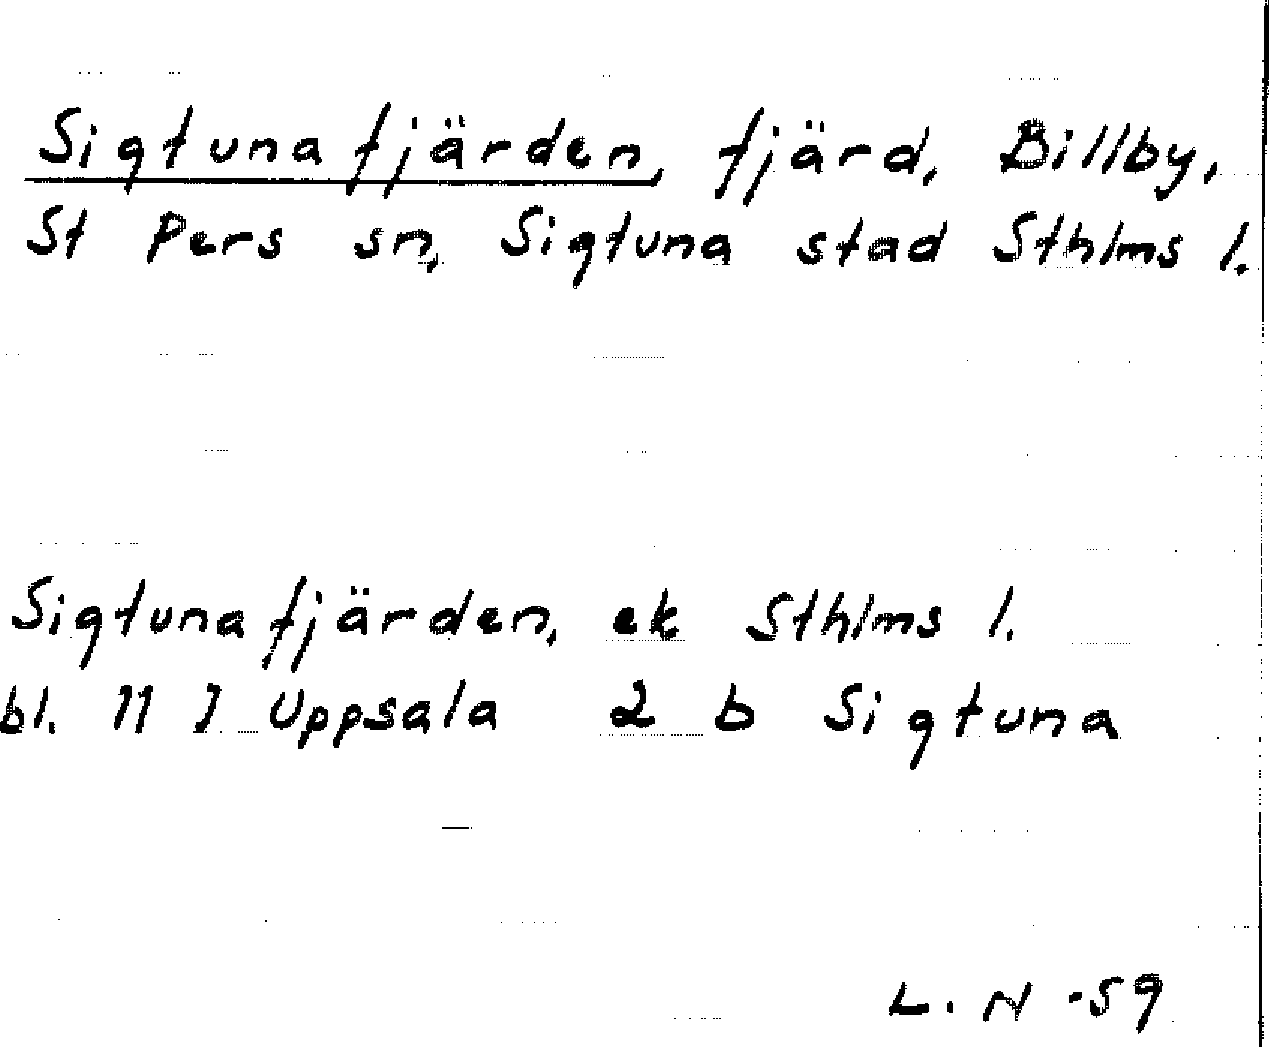 Sigtunafjärden, fjärd, Billby,
St Pers sn, Sigtuna stad Sthlms l.
Sigtunafjärden, ek Sthlms l.
bl. 11 I Uppsala 2 b Sigtuna
L. N -59